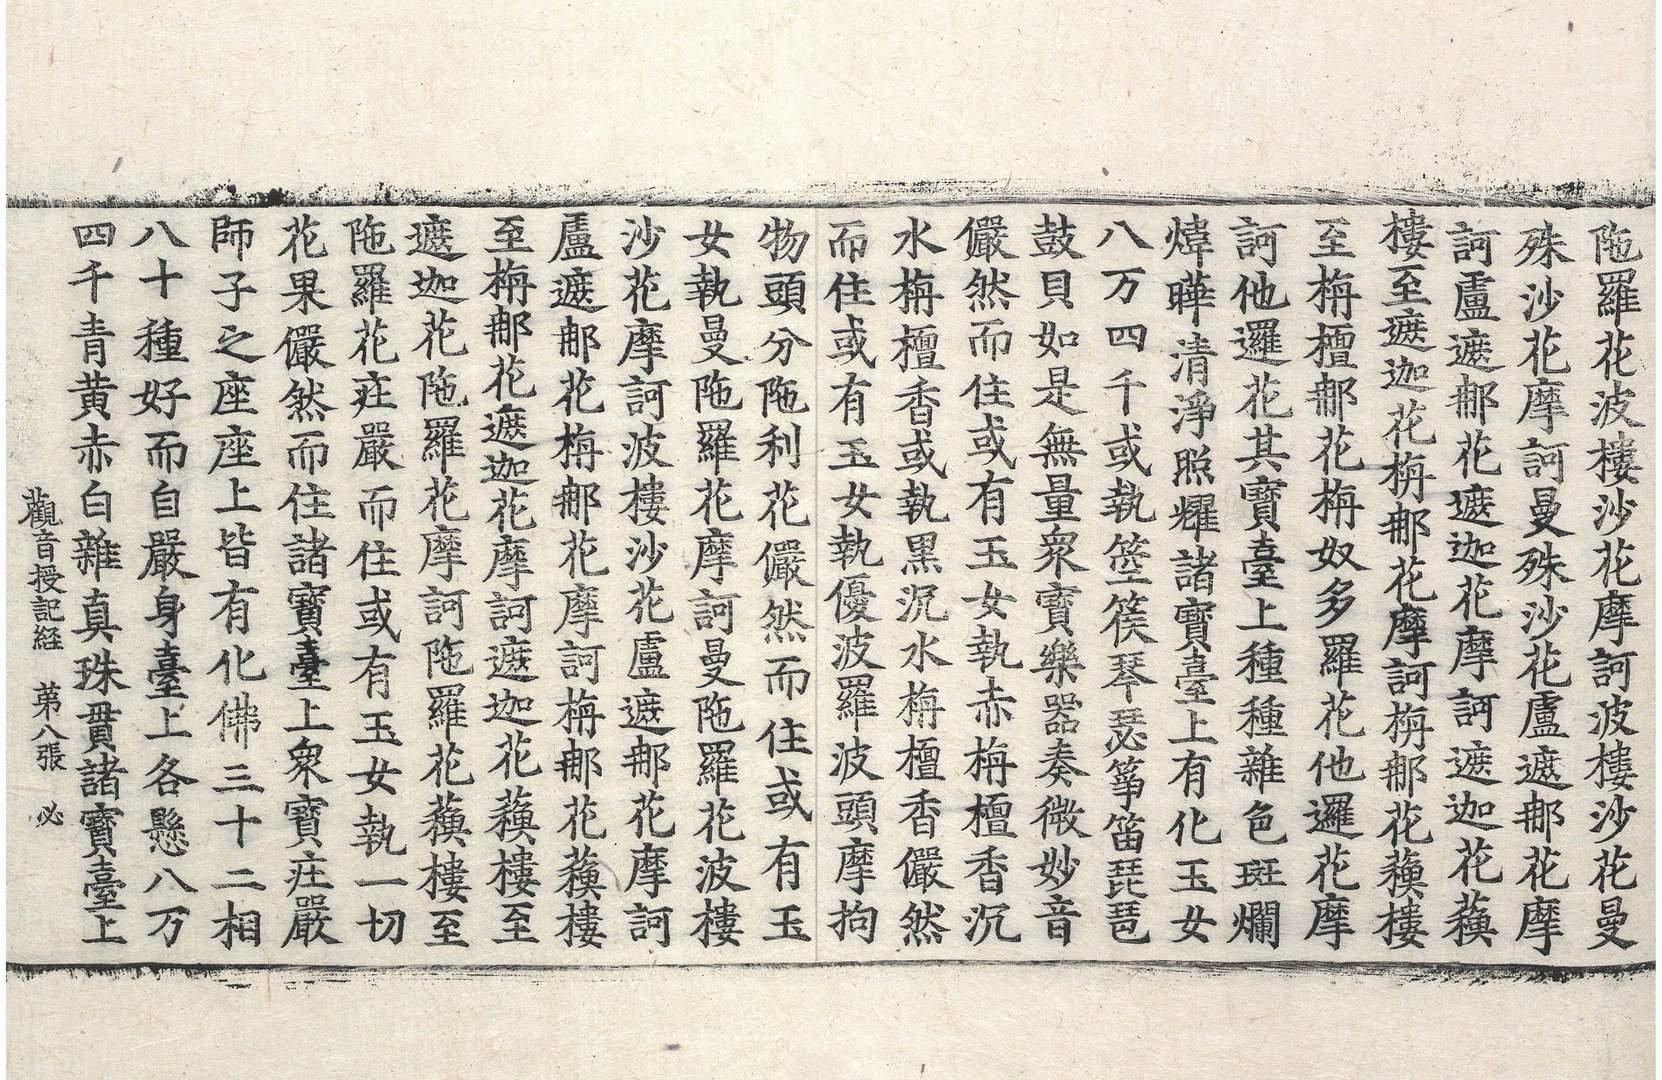 陁羅花波樓沙花摩訶波樓沙花曼
殊沙花摩訶曼殊沙花盧遮郍花摩
訶盧遮郍花遮迦花摩訶遮迦花蘓
樓至遮迦花栴郍花摩訶栴郍花蘓樓
至栴檀郍花栴奴多羅花他邏花摩
訶他邏花其寶臺上種種雜色斑爛
煒曄清淨照耀諸寶臺上有化玉女
八万四千或執箜篌琴瑟筝笛琵琶
鼓貝如是無量衆寶樂器奏微妙音
儼然而住或有玉女執赤栴檀香沉
水栴檀香或執黑沉水栴檀香儼然
而住或有玉女執優波羅波頭摩拘
物頭分陁利花儼然而住或有玉
女執曼陁羅花摩訶曼陁羅花波樓
沙花摩訶波樓沙花盧遮郍花摩訶
盧遮郍花栴郍花摩訶栴郍花蘓樓
至栴郍花遮迦花摩訶遮迦花蘓樓至
遮迦花陁羅花摩訶陁羅花蘓樓至
陁羅花莊嚴而住或有玉女執一切
花果儼然而住諸寶臺上衆寶莊嚴
師子之座座上皆有化佛三十二相
八十種好而自嚴身臺上各懸八万
四千青黄赤白雜真珠貫諸寶臺上
觀音授記経 第八張 必